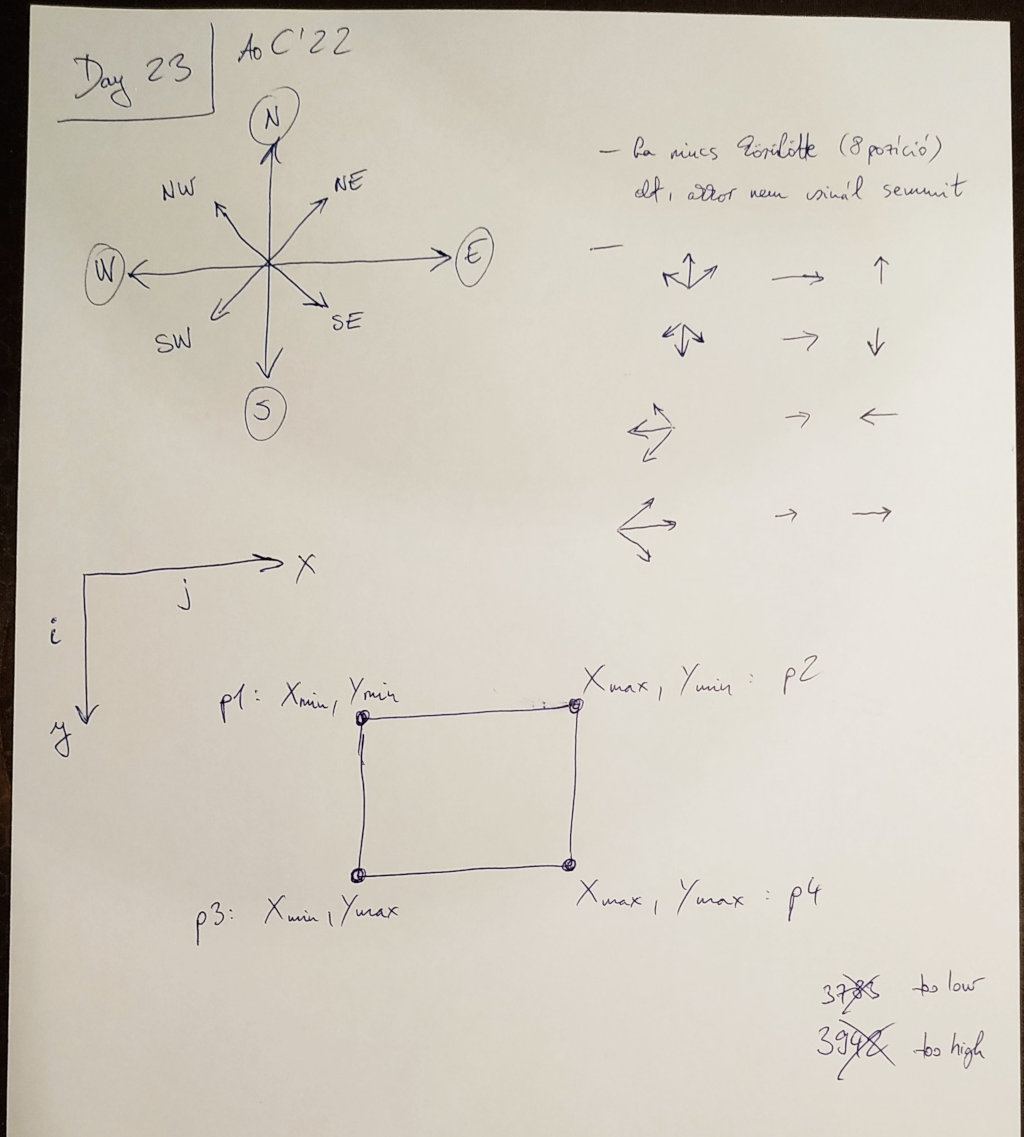 Day 23
AoC'22
N
NW
NE
W
E
SW
SE
S
– ha nincs körülötte (8 pozíció)
elf, akkor nem csinál semmit
–
j
x
i
y
p1: Xmin, Ymin
Xmax, Ymin : p2
p3: Xmin, Ymax
Xmax, Ymax : p4
3783 too low
3942 too high